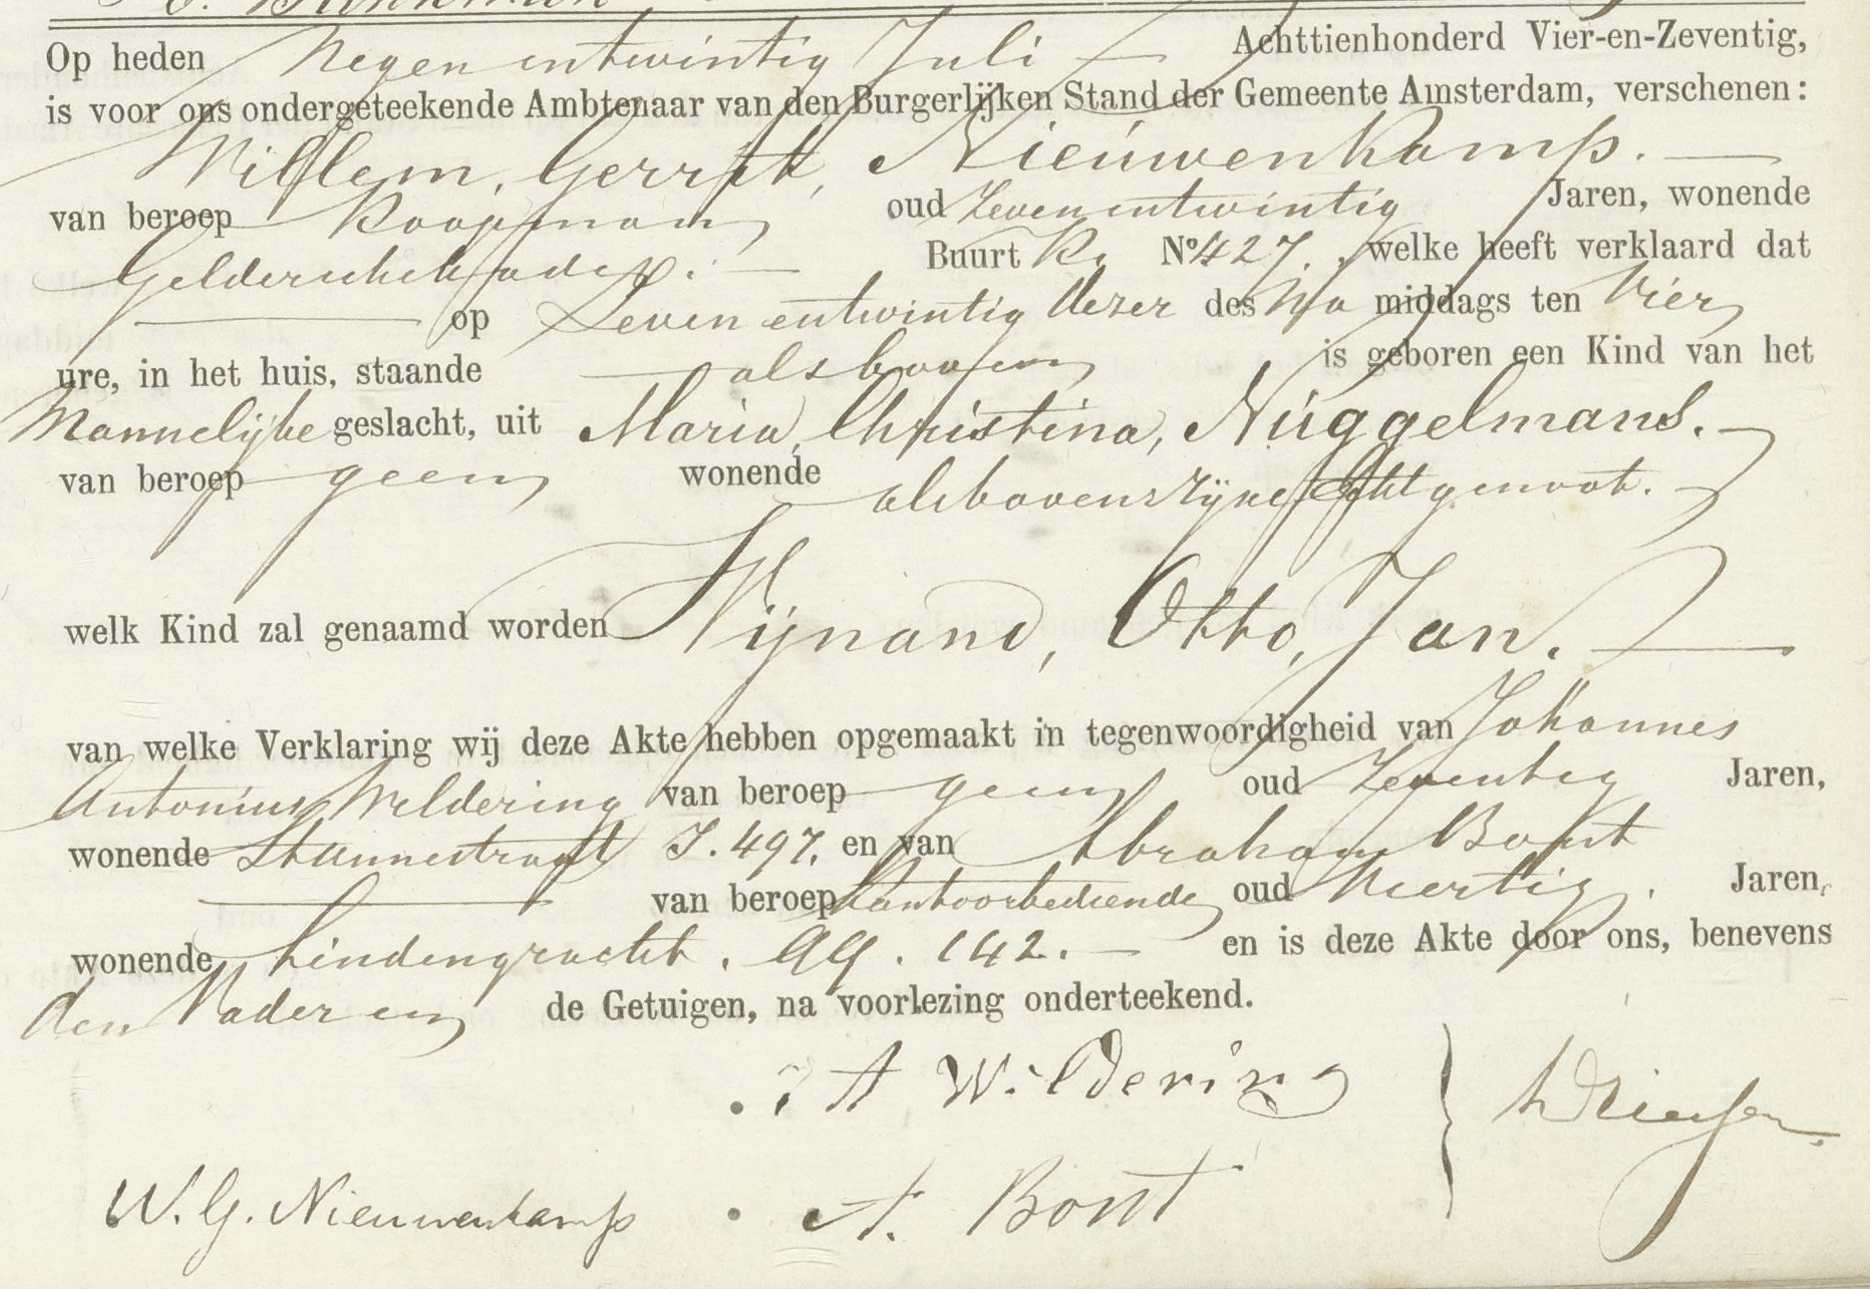 Op heden Negen entwintig Juli Achttienhonderd Vier-en-Zeventig,
is voor ons ondergeteekende Ambtenaar van den Burgerlijken Stand der Gemeente Amsterdam, verschenen:
Willem, Gerrit, Nieuwenkamp.
van beroep Koopman oud Zeven entwintig Jaren, wonende
Gelderschekade Buurt K. No 427. welke heeft verklaard dat
op Zeven entwintig dezer des Na middags ten Vier
ure, in het huis, staande alsboven is geboren een Kind van het
Mannelijke geslacht, uit Maria, Christina, Nuggelmans.
van beroep geen wonende alsboven zijne Echtgenoot.
welk Kind zal genaamd worden Wijnand, Otto, Jan.
van welke Verklaring wij deze Akte hebben opgemaakt in tegenwoordigheid van Johannes
Antonius Weldering van beroep geen oud Zeventig Jaren,
wonende J. 497. en van Abraham Bont
van beroep Kantoorbediende oud Veertig. Jaren,
wonende Lindengracht. QQ. 142. en is deze Akte door ons, benevens
den Vader en de Getuigen, na voorlezing onderteekend.
A Wildering
W. G. Nieuwenkamp A. Bont